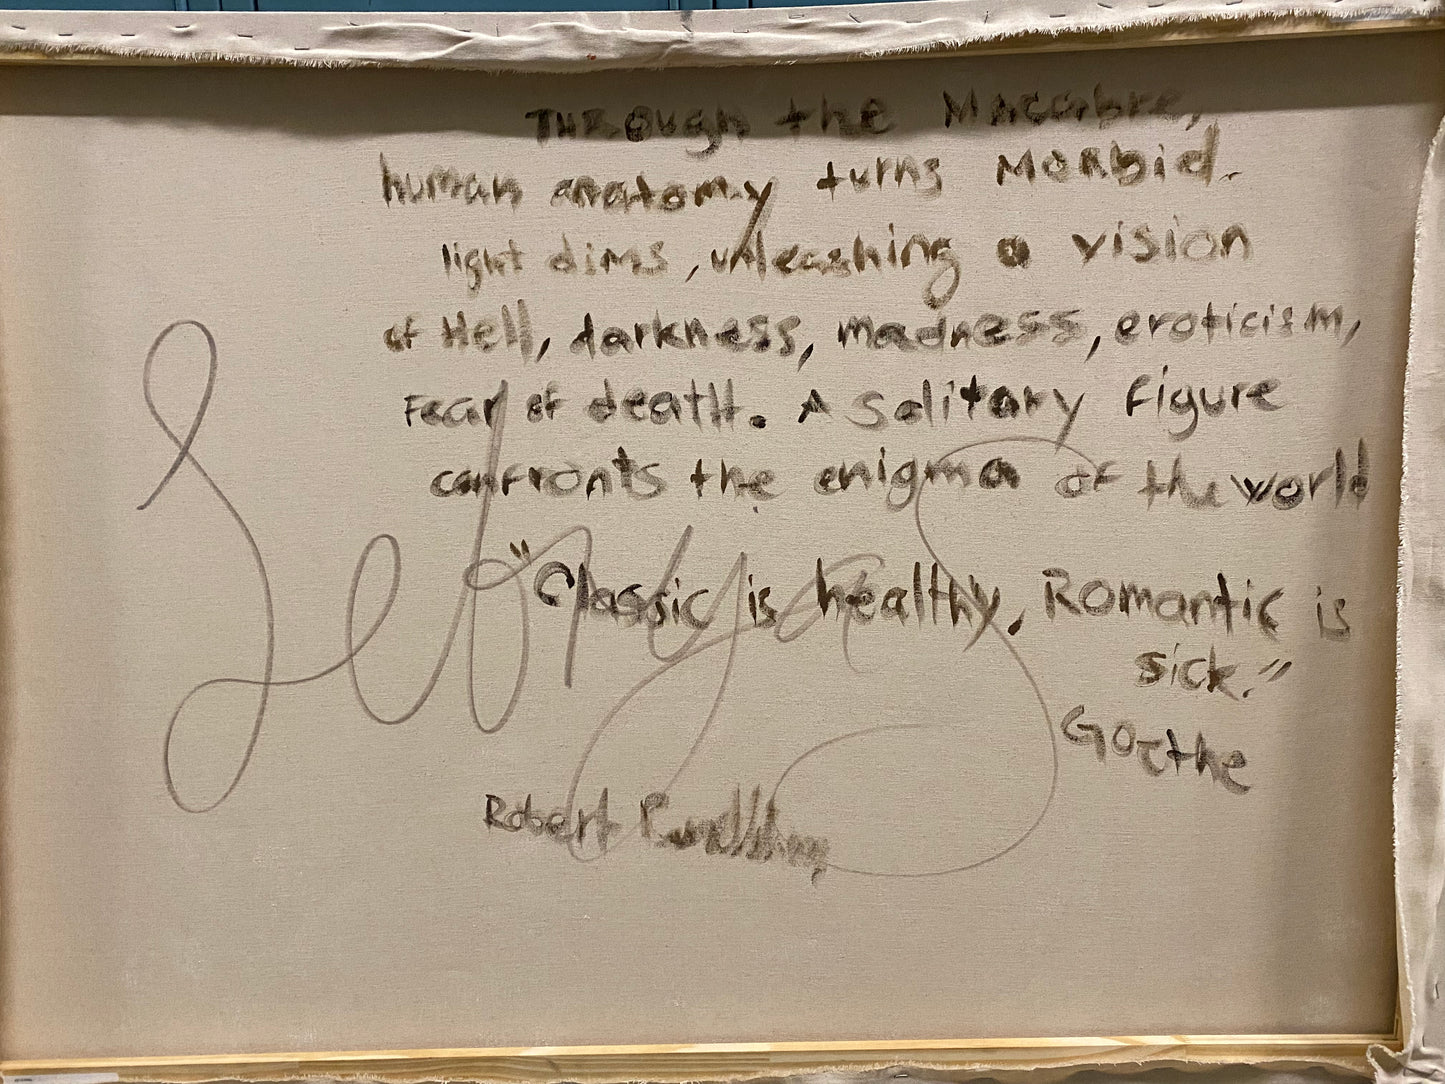 Through the Macabre,
human anatomy turns Morbid.
light dims, unleashing a vision
of Hell, darkness, madness, eroticism,
Fear of death. A solitary figure
confronts the enigma of the world
"Classic is healthy, Romantic is
sick."
Goethe
Robert